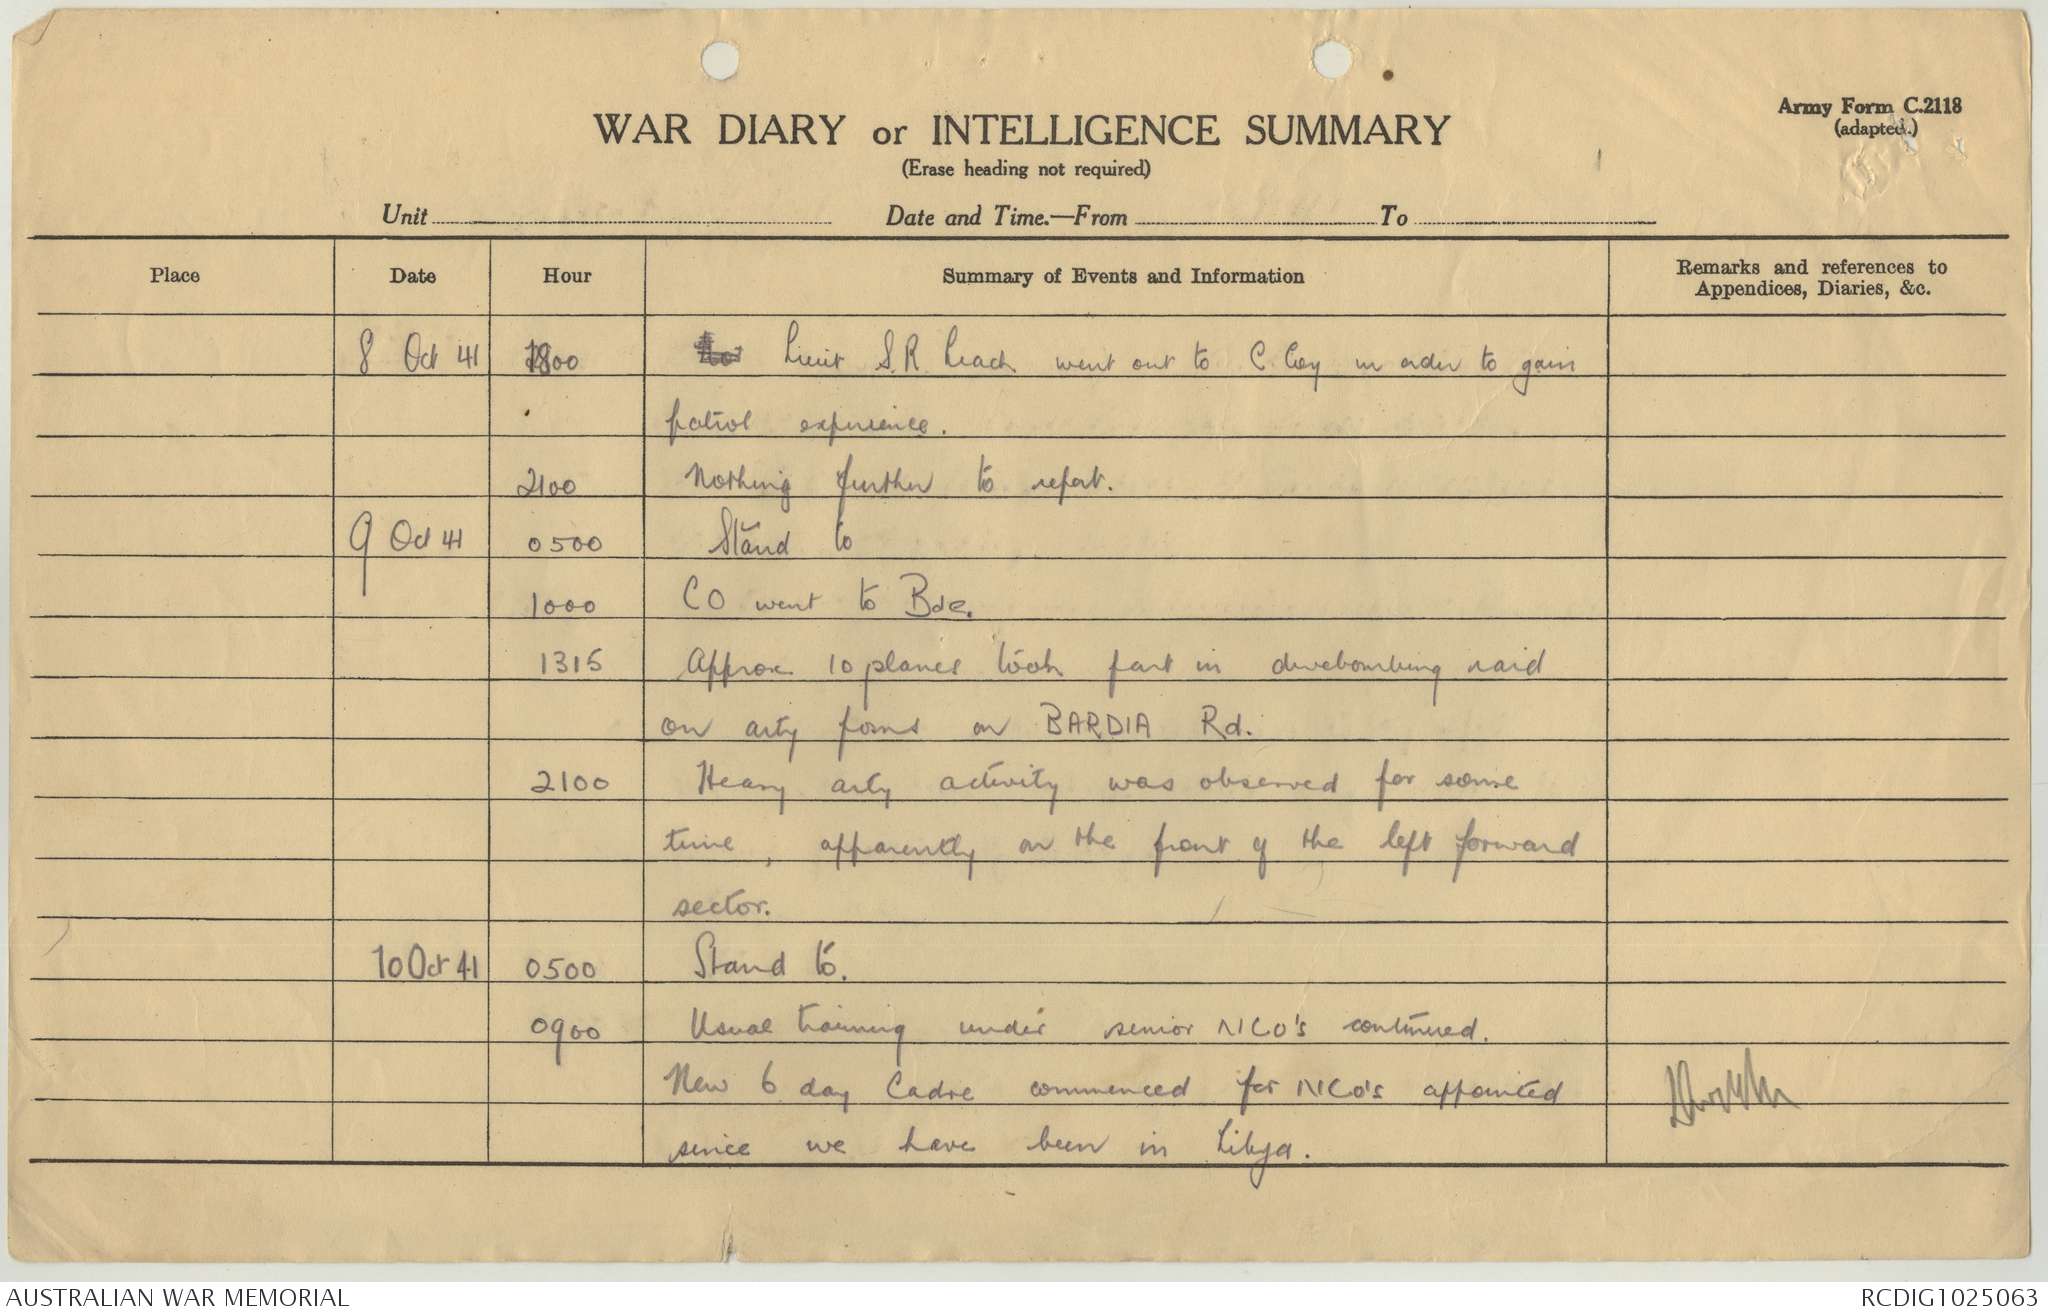 Army Form C.2118
(adapted.)
WAR DIARY or INTELLIGENCE SUMMARY
(Erase heading not required)
Unit Date and Time.—From To
Place Date Hour Summary of Events and Information Remarks and references to
Appendices, Diaries, &c.
8 Oct 41 1800 Lieut S.R. Leach went out to C. Coy in order to gain
patrol experience.
2100 Nothing further to report.
9 Oct 41 0500 Stand to
1000 CO went to Bde.
1315 Approx 10 planes took part in divebombing raid
on arty posns on BARDIA Rd.
2100 Heavy arty activity was observed for some
time, apparently on the front of the left forward
sector.
10 Oct 41 0500 Stand to.
0900 Usual training under senior NCO's continued.
New 6 day Cadre commenced for NCO's appointed
since we have been in Libya.
AUSTRALIAN WAR MEMORIAL RCDIG1025063